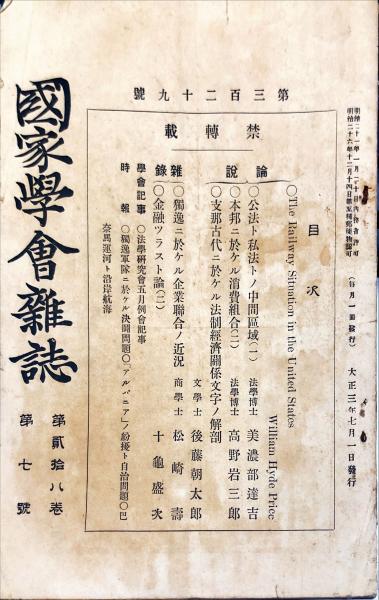 明治二十一年一月二十日內務省許可
明治二十六年十二月十四日第三種郵便物認可
(每月一回發行)　大正三年七月一日發行
第三百二十九號
禁轉載
目次
○The Railway Situation in the United States
William Hyde Price
論說
○公法ト私法トノ中間區域(一)　法學博士　美濃部達吉
○本邦ニ於ケル消費組合(二)　法學博士　高野岩三郎
○支那古代ニ於ケル法制經濟關係文字ノ解剖
文學士　後藤朝太郎
雜錄
○獨逸ニ於ケル企業聯合ノ近況　商學士　松崎壽
○金融ツラスト論(二)　十龜盛次
學會記事　○法學硏究會五月例會記事
時報　○獨逸軍隊ニ於ケル決鬪問題○「アルバニア」ノ紛擾ト自治問題○巴
奈馬運河ト沿岸航海
第貳拾八卷　第七號
國家學會雜誌